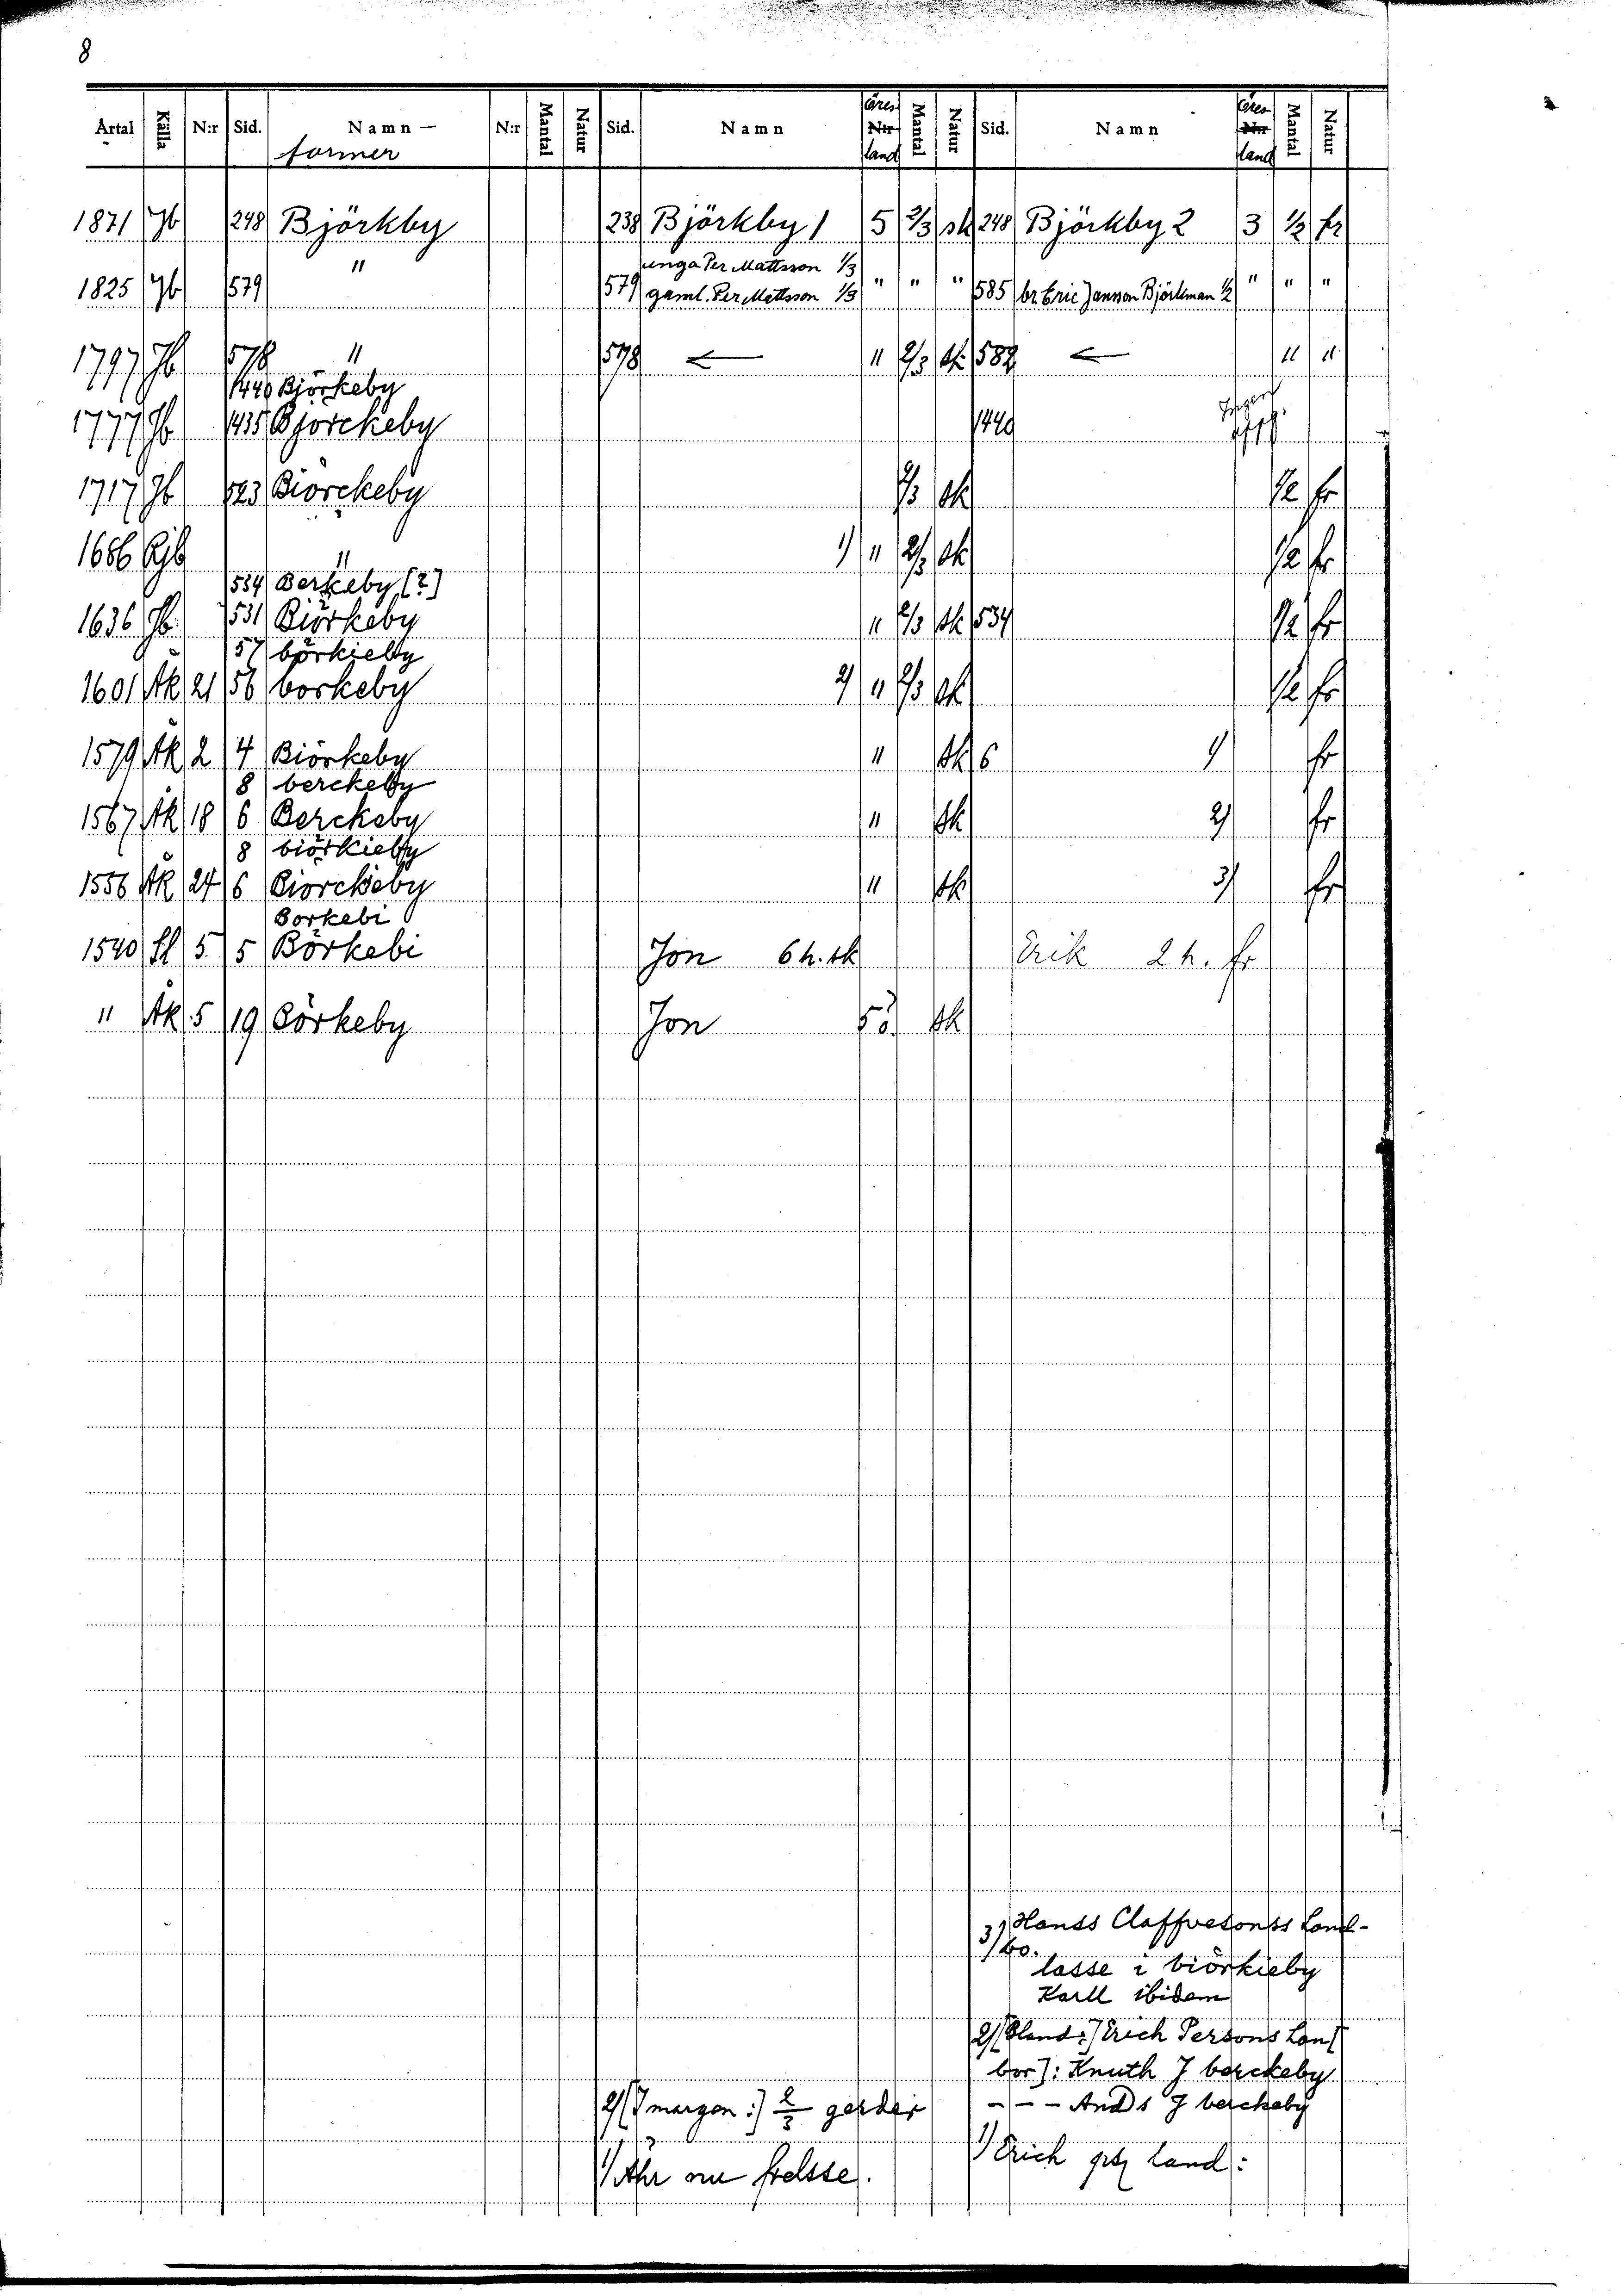 8
Årtal Källa N:r Sid. Namn- N:r Mantal Natur Sid. Namn Öres- N:r Mantal Natur Sid. Namn Öres- N:r Mantal Natur
former land land
1871 Jb 248 Björkby 238 Björkby 1 5 2/3 sk 248 Björkby 2 3 1/2 fr
unga Per Mattsson 1/3
1825 Jb 579 " 579 gaml. Per Mattsson 1/3 " " " 585 br Eric Janson Björkman 1/2 " " "
1797 Jb 578 " 578 ← " 2/3 sk 582 ← " "
1440 Björkeby
1777 Jb 1435 Bjorckeby 1440
1717 Jb 523 Biorckeby 2/3 sk 1/2 fr
1686 Rjb " 1) " 2/3 sk 1/2 fr
534 Berkeby [?]
1636 Jb 531 Biörkeby " 2/3 sk 534 1/2 fr
57 börkieby
1601 Äk 21 56 borkeby 2) " 2/3 sk 1/2 fr
1579 Äk 2 4 Biörkeby " sk 6 1) fr
8 berckeby
1567 Äk 18 6 Berckeby " sk 2) fr
8 biörkieby
1556 Äk 24 6 Biorckeby " sk 3) fr
Borkebi
1540 Sl 5 5 Börkebi Jon 6 h. sk Erik 2 h. fr
" Äk 5 19 Börkeby Jon 5 ö. sk
3) Hanss Claffvesonss Land-
bo.
lasse i biörkieby
Karll ibidem
2) [Bland:] Erich Persons Lan[
bor]: Knuth J berckeby
2) [I margen:] 2/3 gerder
- - - Anders J berckeby
1) Erich land:
1) Åhr frelsse.